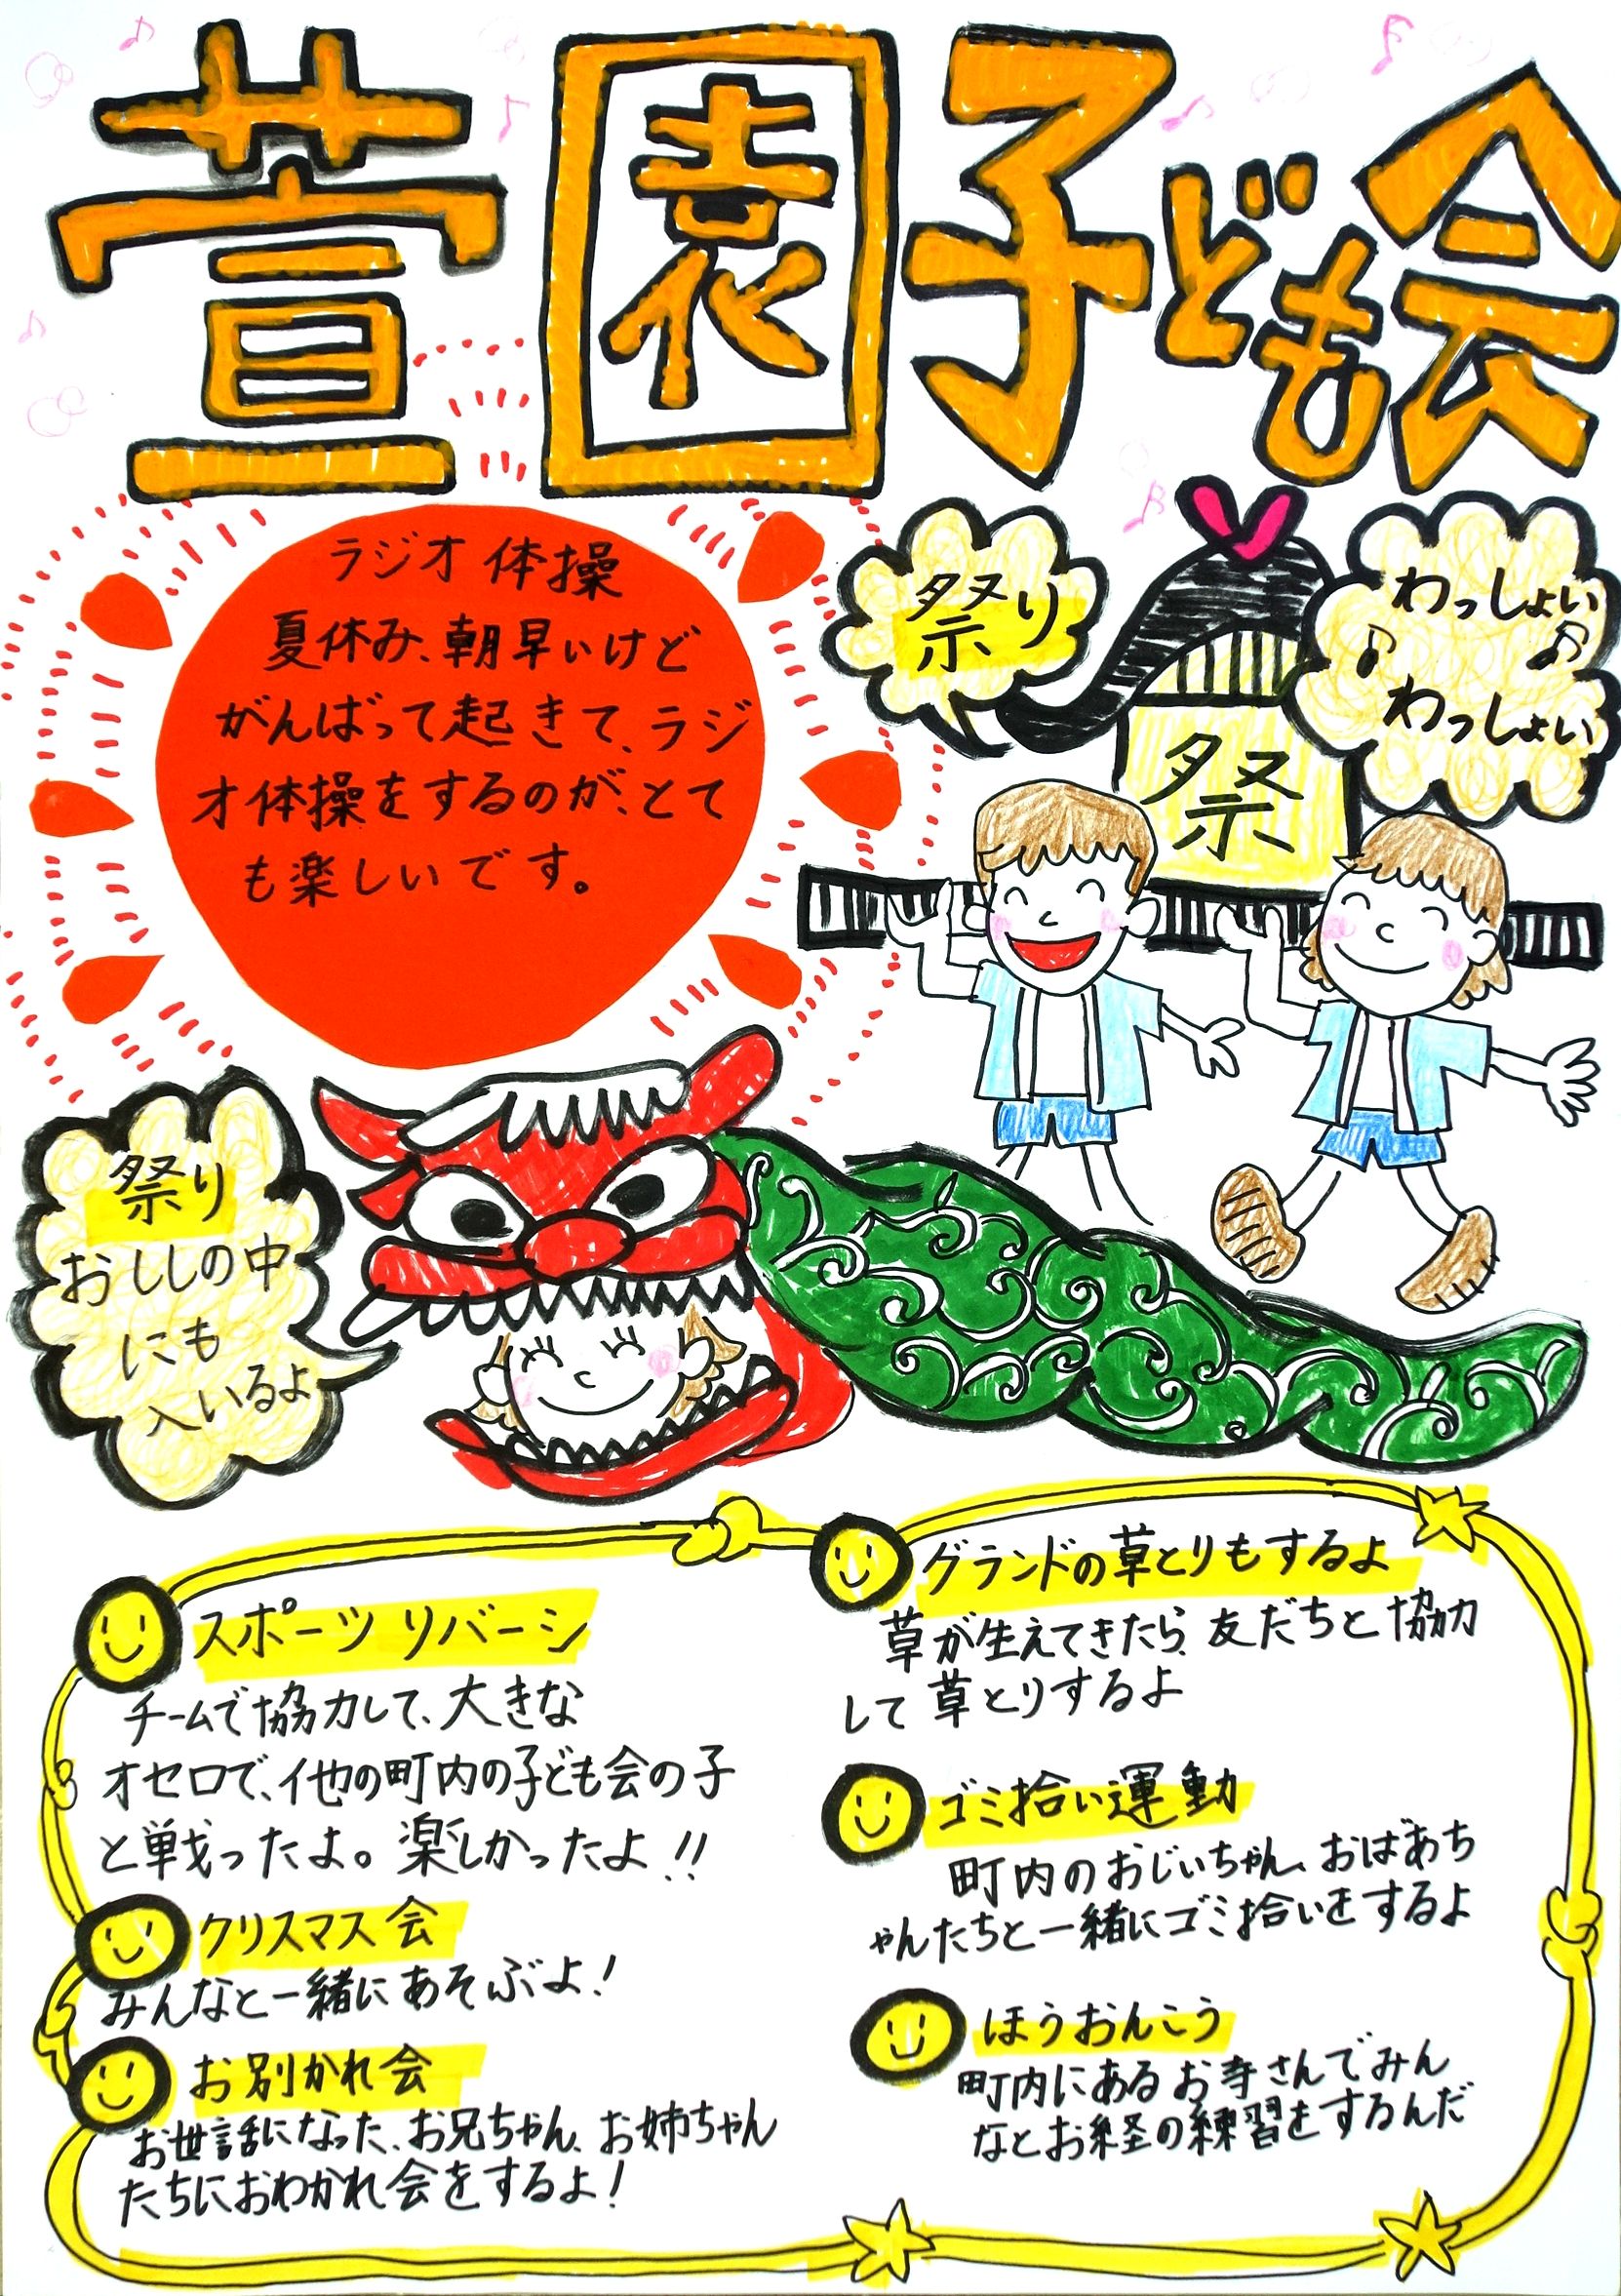 萱園子ども会
ラジオ体操
夏休み、朝早いけど
がんばって起きて、ラジ
オ体操をするのが、とて
も楽しいです。
祭り
わっしょい
わっしょい
祭
祭り
おししの中
にも
入いるよ
スポーツ リバーシ
チームで協力して、大きな
オセロで、他の町内の子ども会の子
と戦ったよ。楽しかったよ!!
クリスマス会
みんなと一緒にあそぶよ!
お別かれ会
お世話になった、お兄ちゃん、お姉ちゃん
たちにおわかれ会をするよ!
グランドの草とりもするよ
草が生えてきたら、友だちと協力
して草とりするよ
ゴミ拾い運動
町内のおじいちゃん、おばあち
ゃんたちと一緒にゴミ拾いをするよ
ほうおんこう
町内にあるお寺さんでみん
なとお経の練習をするんだ